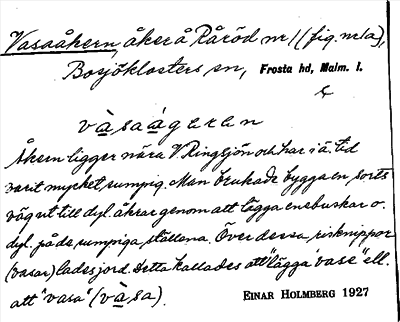 Vasaåkern, åker å Råröd nr 1 (fig. nr 1a),
Bosjöklosters sn, Frosta hd, Malm. l.
vàsaágeren
Åkern ligger nära V Ringsjön och har i ä. tid
varit mycket sumpig. Man brukade bygga en sorts
väg ut till dyl. åkrar genom att lägga enebuskar o.
dyl. på de sumpiga ställena. Över dessa risknippor
(vasar) lades jord. Detta kallades att "lägga vase" ell.
att "vasa" (vàsa).
EINAR HOLMBERG 1927